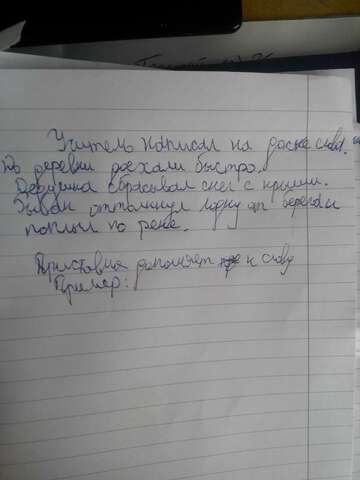 Учитель написал на доске слова.
До деревни доехали быстро.
Дедушка сбрасывал снег с крыши.
Иван оттолкнул лодку от берега и
поплыл по реке.
Приставка дополняет к слову
Пример: